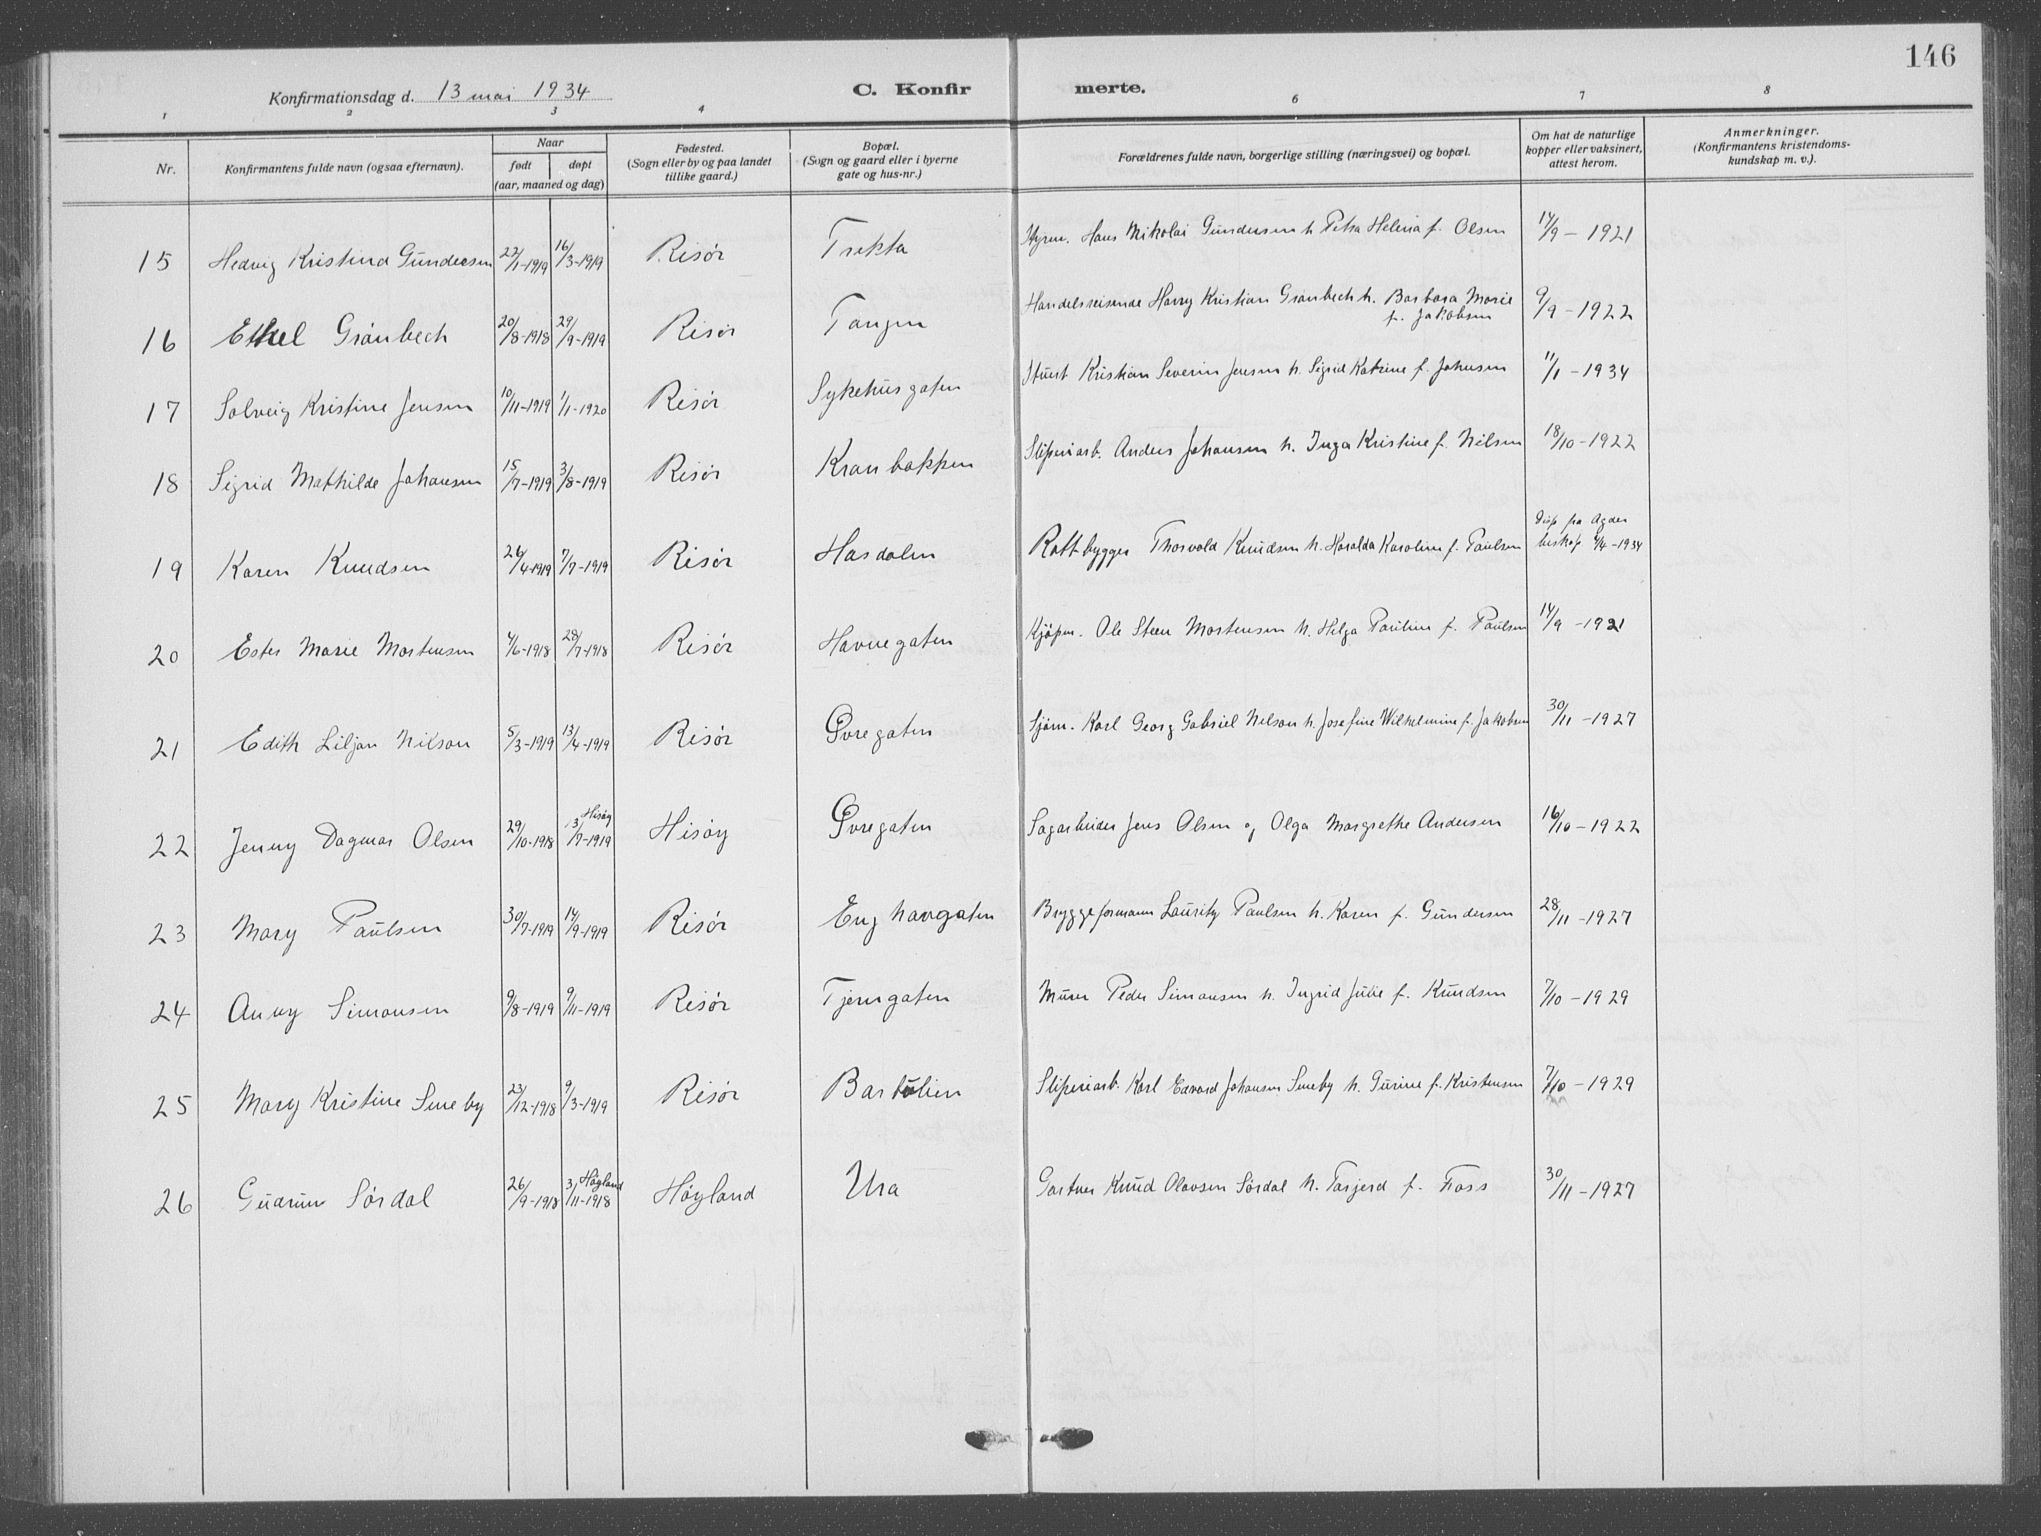 146
Konfirmationsdag d. 13 mai 1934 C. Konfir merte.
1 2 3 4 6 7 8
Nr. Konfirmantens fulde navn (ogsaa efternavn). Naar født døpt (aar, maaned og dag) Fødested. (Sogn eller by og paa landet tillike gaard.) Bopæl. (Sogn og gaard eller i byerne gate og hus-nr.) Forældrenes fulde navn, borgerlige stilling (næringsvei) og bopæl. Om hat de naturlige kopper eller vaksinert, attest herom. Anmerkninger. (Konfirmantens kristendomskundskap m. v.).
15 Hedvig Kristina Gundersen 22/1-1919 16/3-1919 Risør Trekta Styrm. Hans Mikolai Gundersen h. Petra Helena f. Olsen 14/9 - 1921
16 Ethel Grønbech 20/8-1918 29/9-1919 Risør Tangen Handelsreisende Harry Kristian Grønbech h. Barbara Marie f. Jakobsen 9/9 - 1922
17 Solveig Kristine Jensen 10/11-1919 1/1-1920 Risør Sykehusgaten Stuert Kristian Severin Jensen h. Sigrid Katrine f. Johnsen 11/1 - 1934
18 Sigrid Mathilde Johansen 15/7-1919 3/8-1919 Risør Kranbakken Sliperiarb. Anders Johansen h. Inga Kristine f. Nilsen 18/10 - 1922
19 Karen Knudsen 26/4-1919 7/7-1919 Risør Hasdalen Rottbygger Thorvald Knudsen h. Haralda Karoline f. Paulsen Disp fra Agder biskop 9/4-1934
20 Ester Marie Mortensen 4/6-1918 28/7-1918 Risør Havnegaten Kjøpm. Ole Steen Mortensen h. Helga Pauline f. Paulsen 14/9 - 1921
21 Edith Liljan Nilson 5/3-1919 13/4-1919 Risør Øvregaten Sjøm. Karl Georg Gabriel Nilson h. Josefine Wilhelmine f. Jakobsen 30/11 - 1927
22 Jenny Dagmar Olsen 29/10-1918 Hisøy 3/7-1919 Hisøy Øvregaten Sagarbeider Jens Olsen og Olga Margrethe Andersen 16/10 - 1922
23 Mary Paulsen 30/7-1919 14/9-1919 Risør Enghavgaten Bryggeformann Lauritz Paulsen h. Karen f. Gundersen 28/11 - 1927
24 Anny Simonsen 9/8-1919 9/11-1919 Risør Tjerngaten Murer Peder Simonsen h. Ingrid Julie f. Knudsen 7/10 - 1929
25 Mary Kristine Smeby 23/12-1918 9/3-1919 Risør Bartulien Sliperiarb. Karl Edvard Johansen Smeby h. Gurine f. Kristensen 7/10 - 1929
26 Gudrun Sørdal 26/9-1918 Høyland 3/11-1918 Høyland Ura Gartner Knud Olavsen Sørdal h. Tarjerd f. Foss 30/11 - 1927